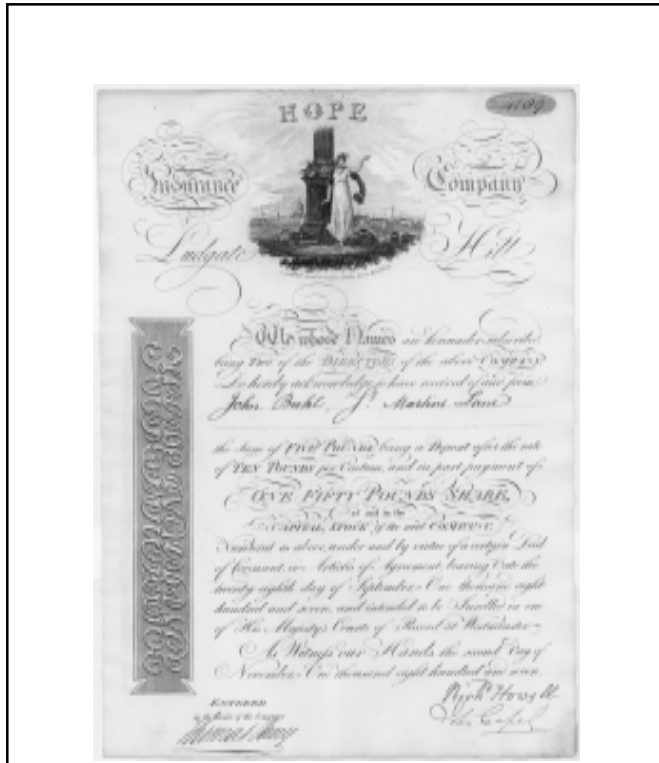 HOPE
Insurance Company
Ludgate Hill
We whose Names are hereunder subscribed
being Two of the DIRECTORS of the above COMPANY
Do hereby acknowledge to have received of and from
John Buhl, St Martins Lane
the Sum of FIVE POUNDS being a Deposit after the rate
of TEN POUNDS per Centum, and in part payment of
ONE FIFTY POUNDS SHARE,
of and in the
CAPITAL STOCK of the said COMPANY.
Numbered as above, under and by virtue of a certain Deed
of Covenant, or Articles of Agreement, bearing Date the
twenty eighth day of September One thousand eight
hundred and seven, and intended to be Inrolled in one
of His Majesty's Courts of Record at Westminster
As Witness our Hands the second Day of
November One thousand eight hundred and seven.
Richd Howell
John Capel
ENTERED
in the Books of the Company